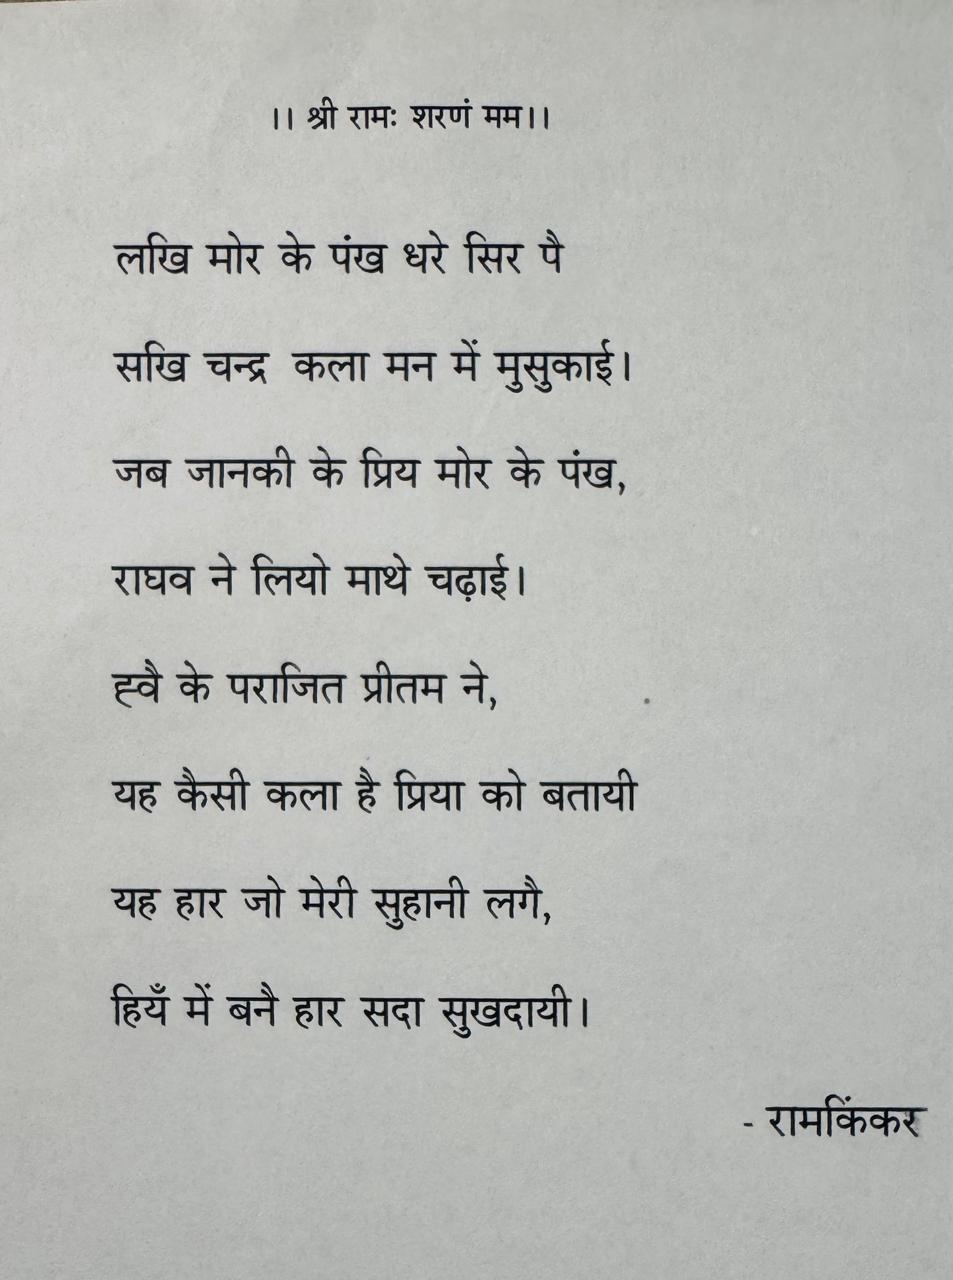 ।। श्री रामः शरणं मम।।
लखि मोर के पंख धरे सिर पै
सखि चन्द्र कला मन में मुसुकाई।
जब जानकी के प्रिय मोर के पंख,
राघव ने लियो माथे चढ़ाई।
ह्वै के पराजित प्रीतम ने,
यह कैसी कला है प्रिया को बतायी
यह हार जो मेरी सुहानी लगै,
हियँ में बनै हार सदा सुखदायी।
- रामकिंकर